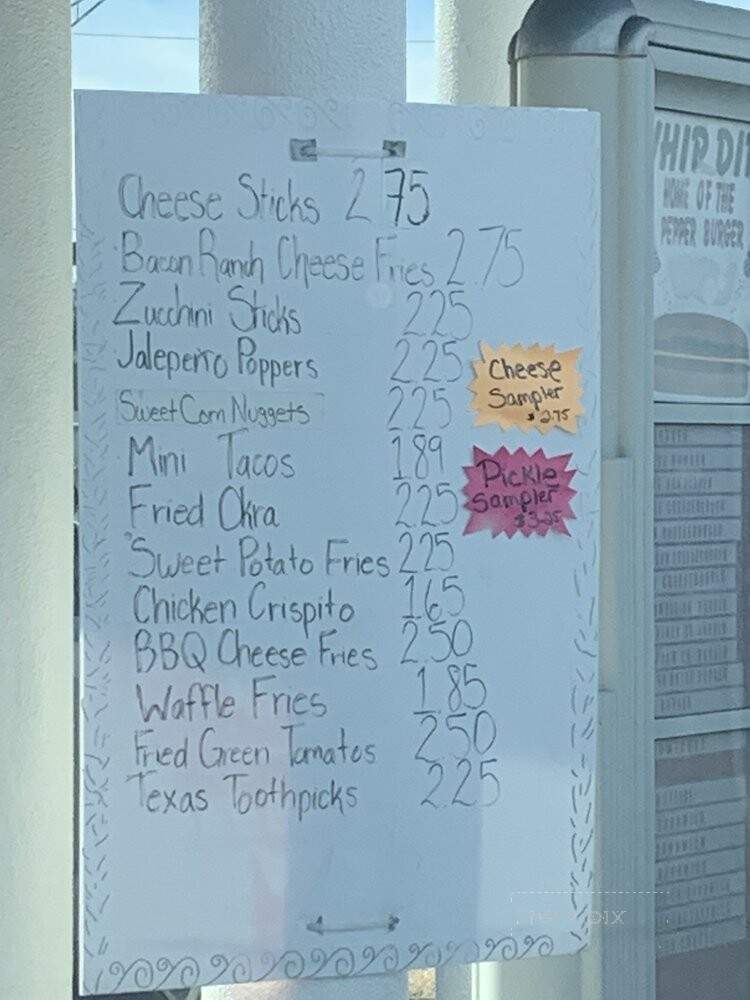 Cheese Sticks 2.75
Bacon Ranch Cheese Fries 2.75
Zucchini Sticks 2.25
Jalepeno Poppers 2.25
Sweet Corn Nuggets 2.25
Mini Tacos 1.89
Fried Okra 2.25
Sweet Potato Fries 2.25
Chicken Crispito 1.65
BBQ Cheese Fries 2.50
Waffle Fries 1.85
Fried Green Tomatos 2.50
Texas Toothpicks 2.25
Cheese
Sampler
$2.75
Pickle
Sampler
$3.25
WHIP DI
HOME OF THE
PEPPER BURGER